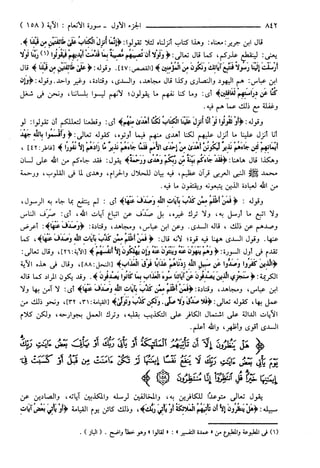 ٨٤٢ الجزء الأول - سورة الأنعام: الآية (١٥٨)
قال ابن جرير: معناه: وهذا كتاب أنزلناه لئلا تقولوا: ﴿إِنَّمَا أُنزِلَ الْكِتَابُ عَلَىٰ طَائِفَتَيْنِ مِن قَبْلِنَا﴾.
يعني: لينقطع عذركم، كما قال تعالى: ﴿وَلَوْلَا أَن تُصِيبَهُم مُّصِيبَةٌ بِمَا قَدَّمَتْ أَيْدِيهِمْ فَيَقُولُوا (١) رَبَّنَا لَوْلَا
أَرْسَلْتَ إِلَيْنَا رَسُولًا فَنَتَّبِعَ آيَاتِكَ وَنَكُونَ مِنَ الْمُؤْمِنِينَ﴾ [القصص: ٤٧]. وقوله: ﴿عَلَىٰ طَائِفَتَيْنِ مِن قَبْلِنَا﴾ قال
ابن عباس: هم اليهود والنصارى وكذا قال مجاهد، والسدي، وقتادة، وغير واحد. وقوله: ﴿وَإِن
كُنَّا عَن دِرَاسَتِهِمْ لَغَافِلِينَ﴾ أي: وما كنا نفهم ما يقولون؛ لأنهم ليسوا بلساننا، ونحن في شغل
وغفلة مع ذلك عما هم فيه.
وقوله: ﴿أَوْ تَقُولُوا لَوْ أَنَّا أُنزِلَ عَلَيْنَا الْكِتَابُ لَكُنَّا أَهْدَىٰ مِنْهُمْ﴾ أي: وقطعنا تعللكم أن تقولوا: لو
أنا أنزل علينا ما أنزل عليهم لكنا أهدى منهم فيما أوتوه، كقوله تعالى: ﴿وَأَقْسَمُوا بِاللَّهِ جَهْدَ
أَيْمَانِهِمْ لَئِن جَاءَهُمْ نَذِيرٌ لَّيَكُونُنَّ أَهْدَىٰ مِنْ إِحْدَى الْأُمَمِ فَلَمَّا جَاءَهُمْ نَذِيرٌ مَّا زَادَهُمْ إِلَّا نُفُورًا﴾ [فاطر: ٤٢]،
وهكذا قال هاهنا: ﴿فَقَدْ جَاءَكُم بَيِّنَةٌ مِّن رَّبِّكُمْ وَهُدًى وَرَحْمَةٌ﴾ يقول: فقد جاءكم من الله على لسان
محمد ﷺ النبي العربي قرآن عظيم، فيه بيان للحلال والحرام، وهدى لما في القلوب، ورحمة
من الله لعباده الذين يتبعونه ويقتفون ما فيه.
وقوله: ﴿فَمَنْ أَظْلَمُ مِمَّن كَذَّبَ بِآيَاتِ اللَّهِ وَصَدَفَ عَنْهَا﴾ أي: لم ينتفع بما جاء به الرسول،
ولا اتبع ما أرسل به، ولا ترك غيره، بل صدف عن اتباع آيات الله، أي: صرف الناس
وصدهم عن ذلك، قاله السدي. وعن ابن عباس، ومجاهد، وقتادة: ﴿وَصَدَفَ عَنْهَا﴾: أعرض
عنها. وقول السدي هاهنا فيه قوة؛ لأنه قال: ﴿فَمَنْ أَظْلَمُ مِمَّن كَذَّبَ بِآيَاتِ اللَّهِ وَصَدَفَ عَنْهَا﴾، كما
تقدم في أول السورة: ﴿وَهُمْ يَنْهَوْنَ عَنْهُ وَيَنْأَوْنَ عَنْهُ وَإِن يُهْلِكُونَ إِلَّا أَنفُسَهُمْ﴾ [الآية: ٢٦]، وقال تعالى:
﴿الَّذِينَ كَفَرُوا وَصَدُّوا عَن سَبِيلِ اللَّهِ زِدْنَاهُمْ عَذَابًا فَوْقَ الْعَذَابِ﴾ [النحل: ٨٨]، وقال في هذه الآية
الكريمة: ﴿سَنَجْزِي الَّذِينَ يَصْدِفُونَ عَنْ آيَاتِنَا سُوءَ الْعَذَابِ بِمَا كَانُوا يَصْدِفُونَ﴾. وقد يكون المراد كما قاله
ابن عباس، ومجاهد، وقتادة: ﴿فَمَنْ أَظْلَمُ مِمَّن كَذَّبَ بِآيَاتِ اللَّهِ وَصَدَفَ عَنْهَا﴾ أي: لا آمن بها ولا
عمل بها، كقوله تعالى: ﴿فَلَا صَدَّقَ وَلَا صَلَّىٰ. وَلَٰكِن كَذَّبَ وَتَوَلَّىٰ﴾ [القيامة: ٣١، ٣٢]، ونحو ذلك من
الآيات الدالة على اشتمال الكافر على التكذيب بقلبه، وترك العمل بجوارحه، ولكن كلام
السدي أقوى وأظهر، والله أعلم.
﴿هَلْ يَنظُرُونَ إِلَّا أَن تَأْتِيَهُمُ الْمَلَائِكَةُ أَوْ يَأْتِيَ رَبُّكَ أَوْ يَأْتِيَ بَعْضُ آيَاتِ رَبِّكَ
يَوْمَ يَأْتِي بَعْضُ آيَاتِ رَبِّكَ لَا يَنفَعُ نَفْسًا إِيمَانُهَا لَمْ تَكُنْ آمَنَتْ مِن قَبْلُ أَوْ كَسَبَتْ فِي
إِيمَانِهَا خَيْرًا قُلِ انتَظِرُوا إِنَّا مُنتَظِرُونَ﴾
يقول تعالى متوعدًا للكافرين به، والمخالفين لرسله والمكذبين آياته، والصادين عن
سبيله: ﴿هَلْ يَنظُرُونَ إِلَّا أَن تَأْتِيَهُمُ الْمَلَائِكَةُ أَوْ يَأْتِيَ رَبُّكَ﴾، وذلك كائن يوم القيامة ﴿أَوْ يَأْتِيَ بَعْضُ آيَاتِ
(١) في المطبوعة والمطبوع من «عمدة التفسير»: «لقالوا» وهو خطأ واضح. (الباز).